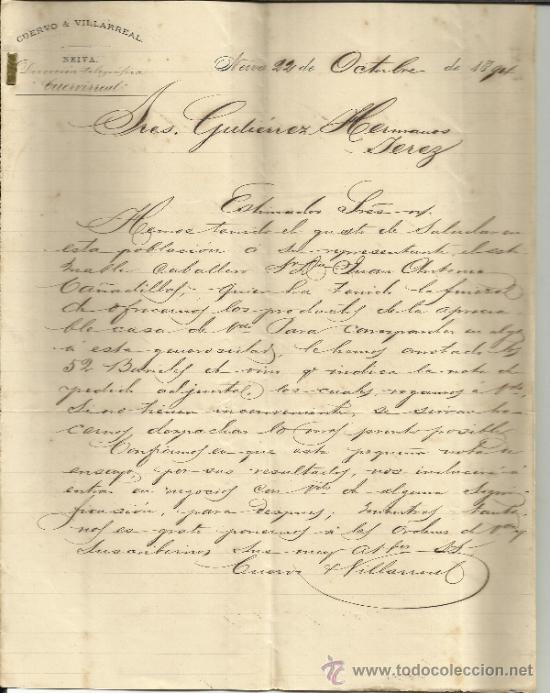 CUERVO & VILLARREAL
NEIVA.
Dirección telegráfica
"Cuervirreal"
Neiva 22 de Octubre de 1894
Sres. Gutiérrez Hermanos
Jerez
Estimados Sres.
Hemos tenido el gusto de saludar en
esta población á su representante el esti
mable caballero Sr Dn Juan Antonio
Cañadillas, quien ha tenido la fineza
de ofrecernos los productos de la aprecia
ble casa de Vds. Para corresponder en algo
á esta generosidad, le hemos anotado
52 Barriles de vino q indica la nota de
pedido adjunta, los cuales rogamos á Vds.
si no tienen inconveniente, se sirvan ha
cernos despachar lo mas pronto posible
Confiamos en que esta pequeña nota de
ensayo, por sus resultados, nos inducirá á
entrar en negocios con Vds de alguna signi
ficación, para despues, mientras tanto
nos es grato ponernos á las órdenes de Vds y
suscribirnos sus muy Attos SS
Cuervo & Villarreal
todocoleccion
www.todocoleccion.net